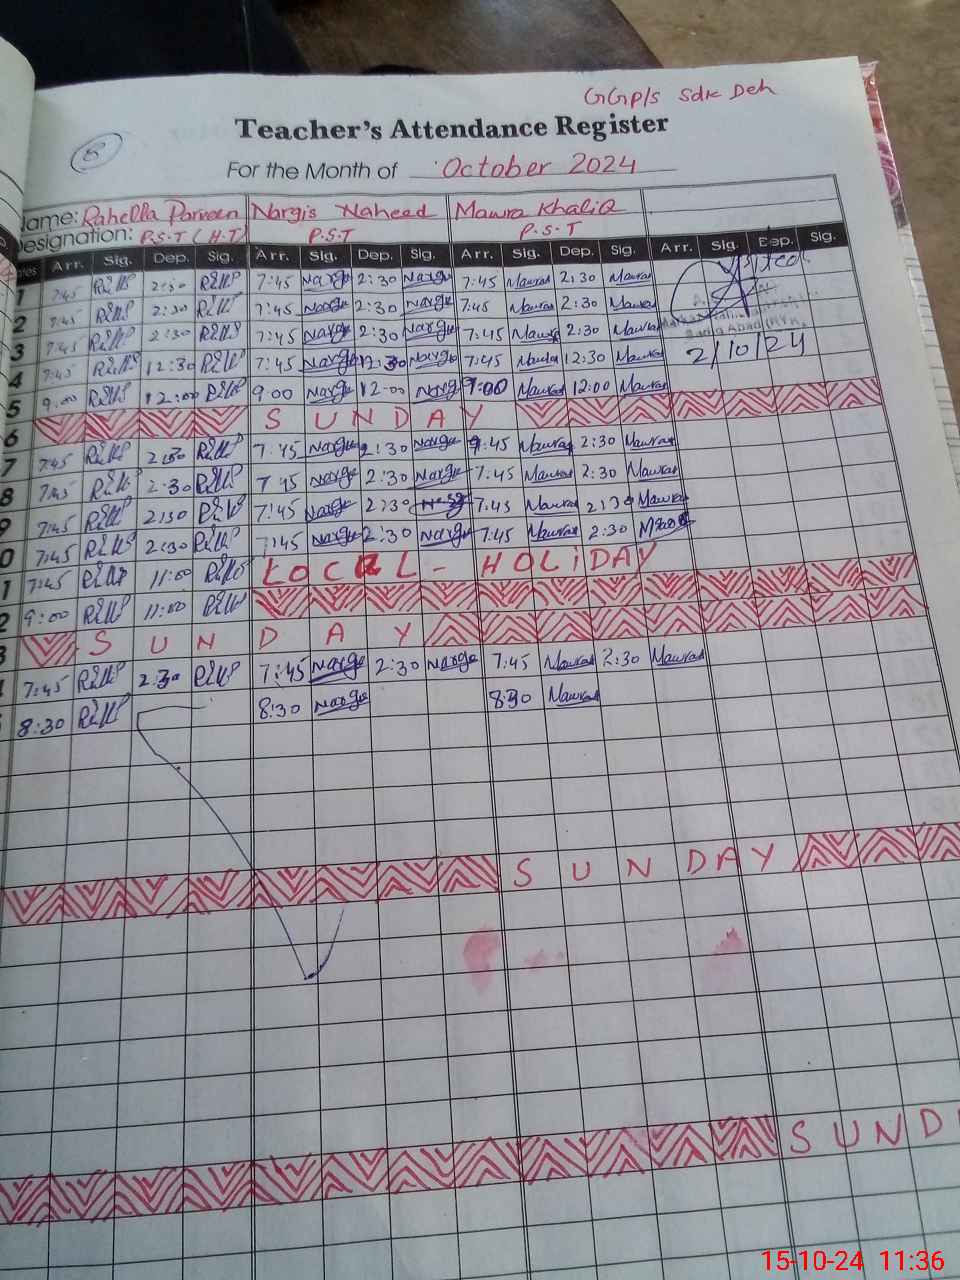 GGP/s Sdk Deh
Teacher's Attendance Register
8
For the Month of October 2024
Name: Rahella Parveen Nargis Naheed Mawra KhaliQ
Designation: P.S.T (H.T) P.S.T P.S.T
Arr. Sig. Dep. Sig. Arr. Sig. Dep. Sig. Arr. Sig. Dep. Sig. Arr. Sig. Dep. Sig.
1 7:45 2:30 7:45 Nargis 2:30 Nargis 7:45 Mawra 2:30 Mawra
2 7:45 2:30 7:45 Nargis 2:30 Nargis 7:45 Mawra 2:30 Mawra
3 7:45 2:30 7:45 Nargis 2:30 Nargis 7:45 Mawra 2:30 Mawra
4 7:45 12:30 7:45 Nargis 12:30 Nargis 7:45 Mawra 12:30 Mawra 2/10/24
5 9:00 12:00 9:00 Nargis 12:00 Nargis 9:00 Mawra 12:00 Mawra
6 SUNDAY
7 7:45 2:30 7:45 Nargis 2:30 Nargis 7:45 Mawra 2:30 Mawra
8 7:45 2:30 7:45 Nargis 2:30 Nargis 7:45 Mawra 2:30 Mawra
9 7:45 2:30 7:45 Nargis 2:30 7:45 Mawra 2:30 Mawra
0 7:45 2:30 7:45 Nargis 2:30 Nargis 7:45 Mawra 2:30 Mawra
1 7:45 11:00 LOCAL - HOLIDAY
2 9:00 11:00
3 SUNDAY
7:45 2:30 7:45 Nargis 2:30 Nargis 7:45 Mawra 2:30 Mawra
8:30 8:30 Nargis 8:30 Mawra
SUNDAY
SUND
15-10-24 11:36